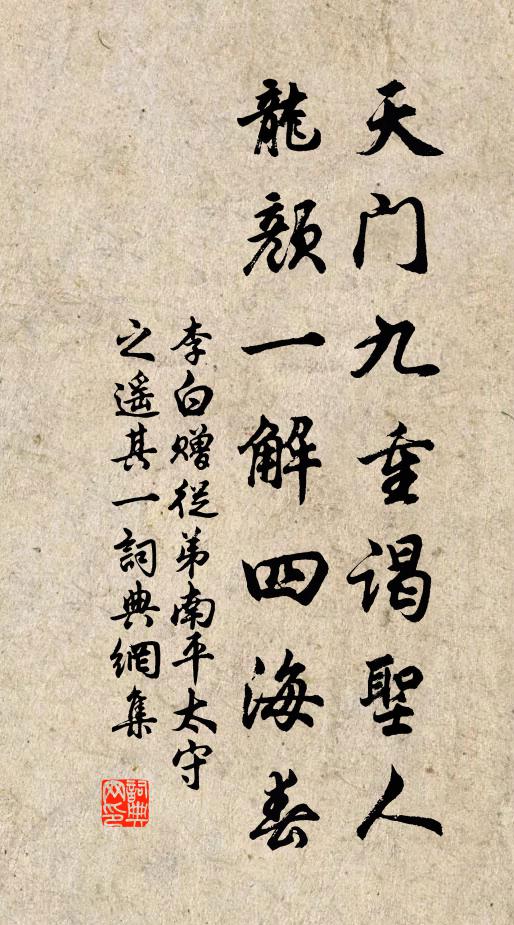 天门九重谒聖人
龍顔一解四海春
李白赠從弟南平太守
之遥其一詞典網集
詞典网印